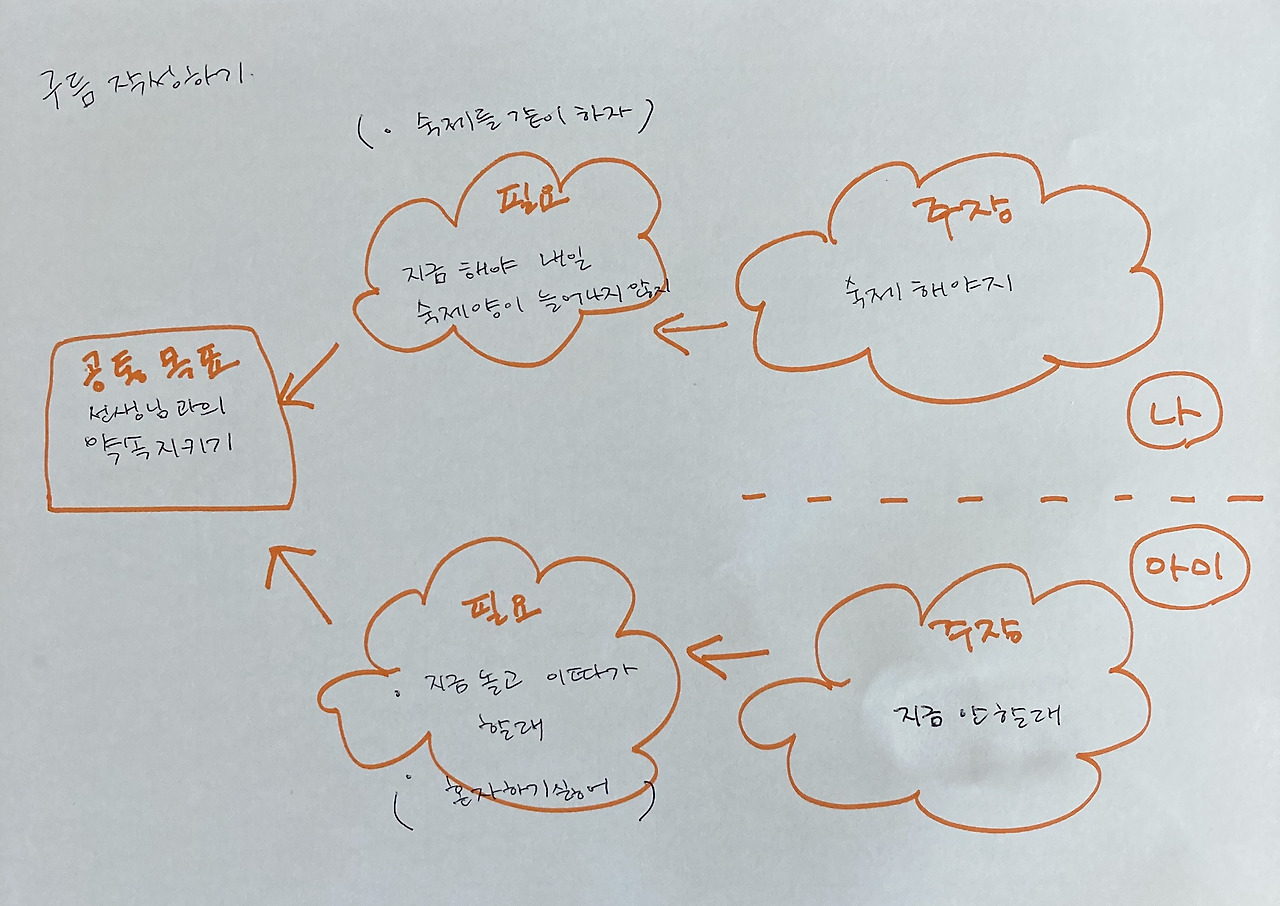 구름 작성하기.
( · 숙제를 같이 하자 )
필요
지금 해야 내일
숙제양이 늘어나지 않지
주장
숙제 해야지
나
공통 목표
선생님과의
약속 지키기
아이
필요
· 지금 놀고 이따가
할래
( · 혼자하기싫어 )
주장
지금 안할래